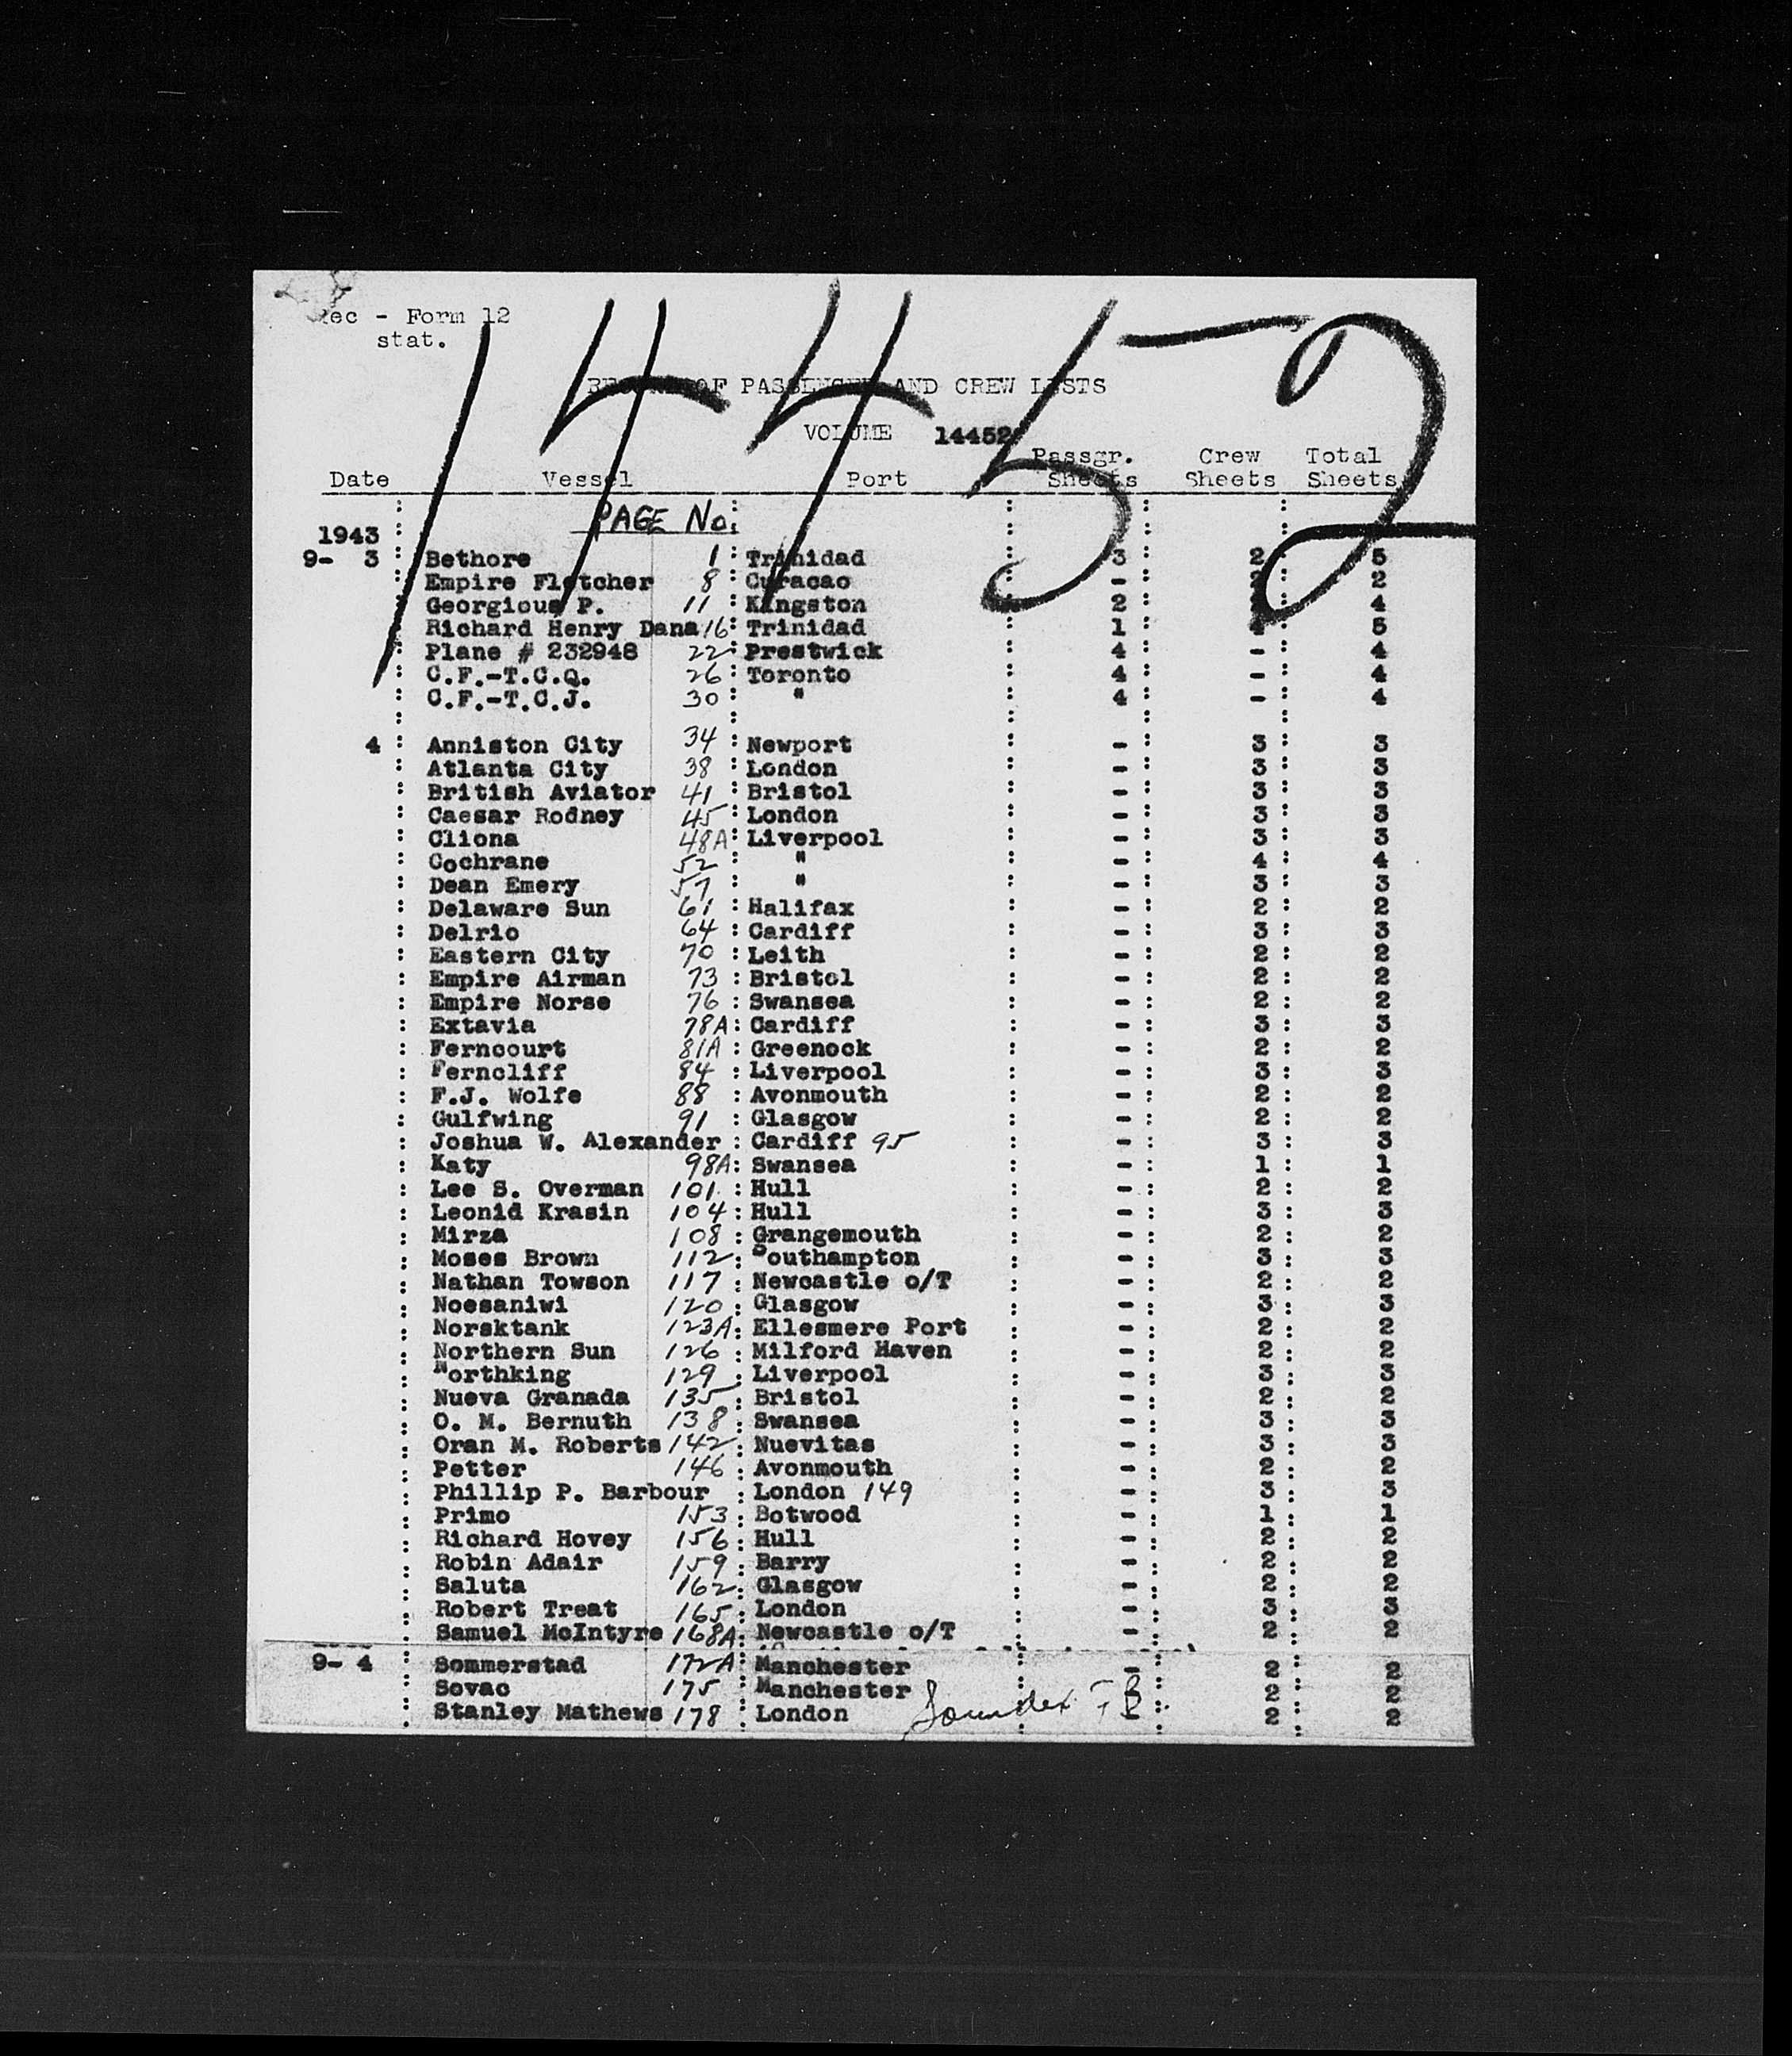 Rec - Form 12
stat.
14452
RECORD OF PASSENGER AND CREW LISTS
VOLUME 14452
Date Vessel Port Passgr. Sheets Crew Sheets Total Sheets
PAGE No.
1943
9- 3 Bethore 1 Trinidad 3 2 5
Empire Fletcher 8 Curacao - 2 2
Georgious P. 11 Kingston 2 4
Richard Henry Dana 16 Trinidad 1 4 5
Plane # 232948 22 Prestwick 4 - 4
C.F.-T.C.Q. 26 Toronto 4 - 4
C.F.-T.C.J. 30 " 4 - 4
4 Anniston City 34 Newport - 3 3
Atlanta City 38 London - 3 3
British Aviator 41 Bristol - 3 3
Caesar Rodney 45 London - 3 3
Cliona 48A Liverpool - 3 3
Cochrane 52 " - 4 4
Dean Emery 57 " - 3 3
Delaware Sun 61 Halifax - 2 2
Delrio 64 Cardiff - 3 3
Eastern City 70 Leith - 2 2
Empire Airman 73 Bristol - 2 2
Empire Norse 76 Swansea - 2 2
Extavia 78A Cardiff - 3 3
Ferncourt 81A Greenock - 2 2
Ferncliff 84 Liverpool - 3 3
F.J. Wolfe 88 Avonmouth - 2 2
Gulfwing 91 Glasgow - 2 2
Joshua W. Alexander Cardiff 95 - 3 3
Katy 98A Swansea - 1 1
Lee S. Overman 101 Hull - 2 2
Leonid Krasin 104 Hull - 3 3
Mirza 108 Grangemouth - 2 2
Moses Brown 112 Southampton - 3 3
Nathan Towson 117 Newcastle o/T - 2 2
Noesaniwi 120 Glasgow - 3 3
Norsktank 123A Ellesmere Port - 2 2
Northern Sun 126 Milford Haven - 2 2
Northking 129 Liverpool - 3 3
Nueva Granada 135 Bristol - 2 2
O. M. Bernuth 138 Swansea - 3 3
Oran M. Roberts 142 Nuevitas - 3 3
Petter 146 Avonmouth - 2 2
Phillip P. Barbour London 149 - 3 3
Primo 153 Botwood - 1 1
Richard Hovey 156 Hull - 2 2
Robin Adair 159 Barry - 2 2
Saluta 162 Glasgow - 2 2
Robert Treat 165 London - 3 3
Samuel McIntyre 168A Newcastle o/T - 2 2
9- 4 Sommerstad 172A Manchester - 2 2
Sovac 175 Manchester 2 2
Stanley Mathews 178 London - 2 2
Soundex